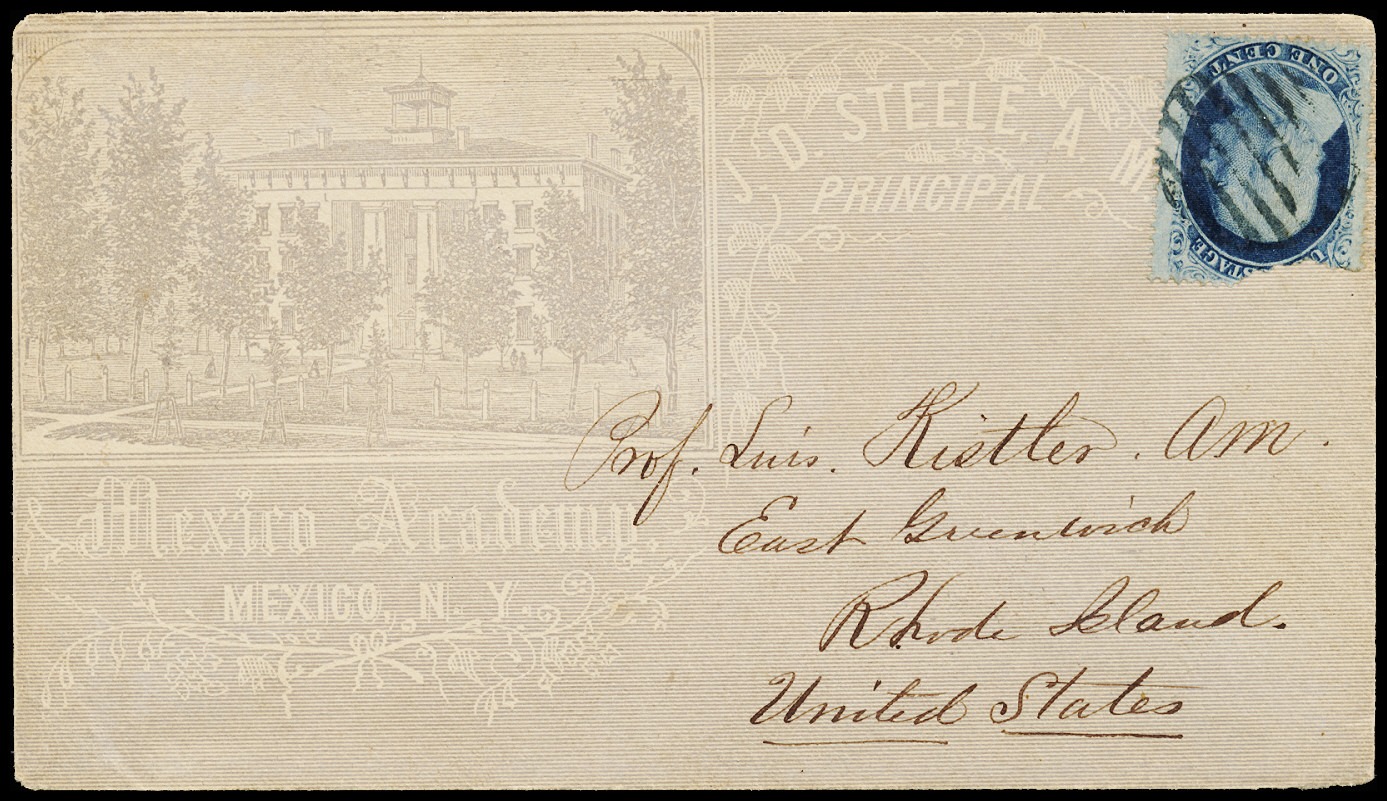 J. D. STEELE, A. M.
PRINCIPAL
ONE CENT
Mexico Academy,
MEXICO, N. Y.
Prof. Luis. Kistler. Am.
East Greenwich
Rhode Island.
United States